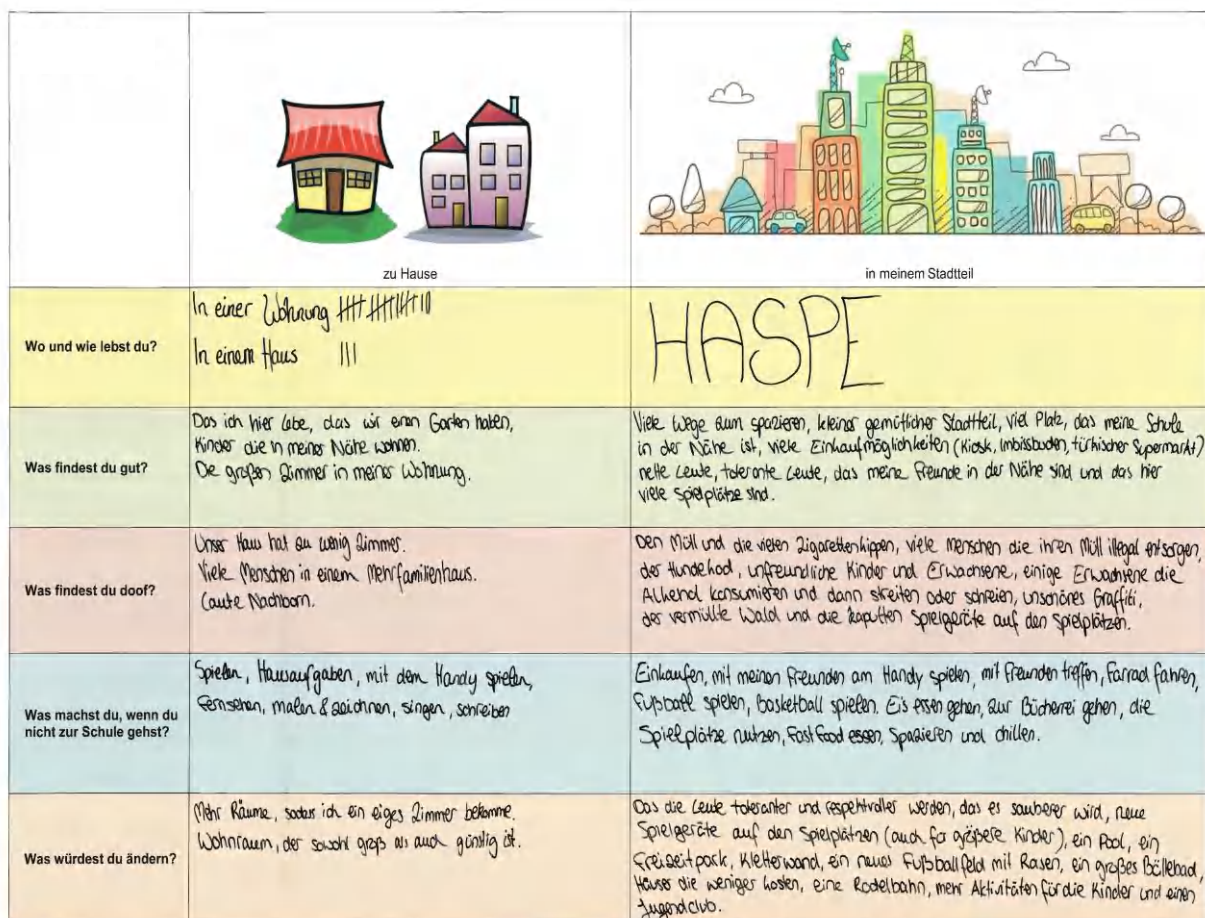 zu Hause
in meinem Stadtteil
Wo und wie lebst du?
In einer Wohnung
In einem Haus III
HASPE
Was findest du gut?
Das ich hier lebe, das wir einen Garten haben,
Kinder die in meiner Nähe wohnen.
Die großen Zimmer in meiner Wohnung.
Viele Wege zum spazieren, kleiner gemütlicher Stadtteil, viel Platz, das meine Schule
in der Nähe ist, viele Einkaufmöglichkeiten (Kiosk, Imbissbuden, türkischer Supermarkt)
nette Leute, tolerante Leute, das meine Freunde in der Nähe sind und das hier
viele Spielplätze sind.
Was findest du doof?
Unser Haus hat zu wenig Zimmer.
Viele Menschen in einem Mehrfamilienhaus.
Laute Nachbarn.
Den Müll und die vielen Zigarettenkippen, viele Menschen die ihren Müll illegal entsorgen,
der Hundekod, unfreundliche Kinder und Erwachsene, einige Erwachsene die
Alkohol konsumieren und dann streiten oder schreien, unschönes Graffiti,
der vermüllte Wald und die kaputten Spielgeräte auf den Spielplätzen.
Was machst du, wenn du
nicht zur Schule gehst?
Spielen, Hausaufgaben, mit dem Handy spielen,
Fernsehen, malen & zeichnen, singen, schreiben
Einkaufen, mit meinen Freunden am Handy spielen, mit Freunden treffen, Farrad fahren,
Fußball spielen, Basketball spielen. Eis essen gehen, zur Bücherrei gehen, die
Spielplätze nutzen, Fast Food essen, Spazieren und chillen.
Was würdest du ändern?
Mehr Räume, sodass ich ein eiges Zimmer bekomme.
Wohnraum, der sowohl groß als auch günstig ist.
Das die Leute toleranter und respektvoller werden, das es sauberer wird, neue
Spielgeräte auf den Spielplätzen (auch für größere Kinder), ein Pool, ein
Freizeitpark, Kletterwand, ein neues Fußballfeld mit Rasen, ein großes Bällebad,
Häuser die weniger kosten, eine Rodelbahn, mehr Aktivitäten für die Kinder und einen
Jugendclub.